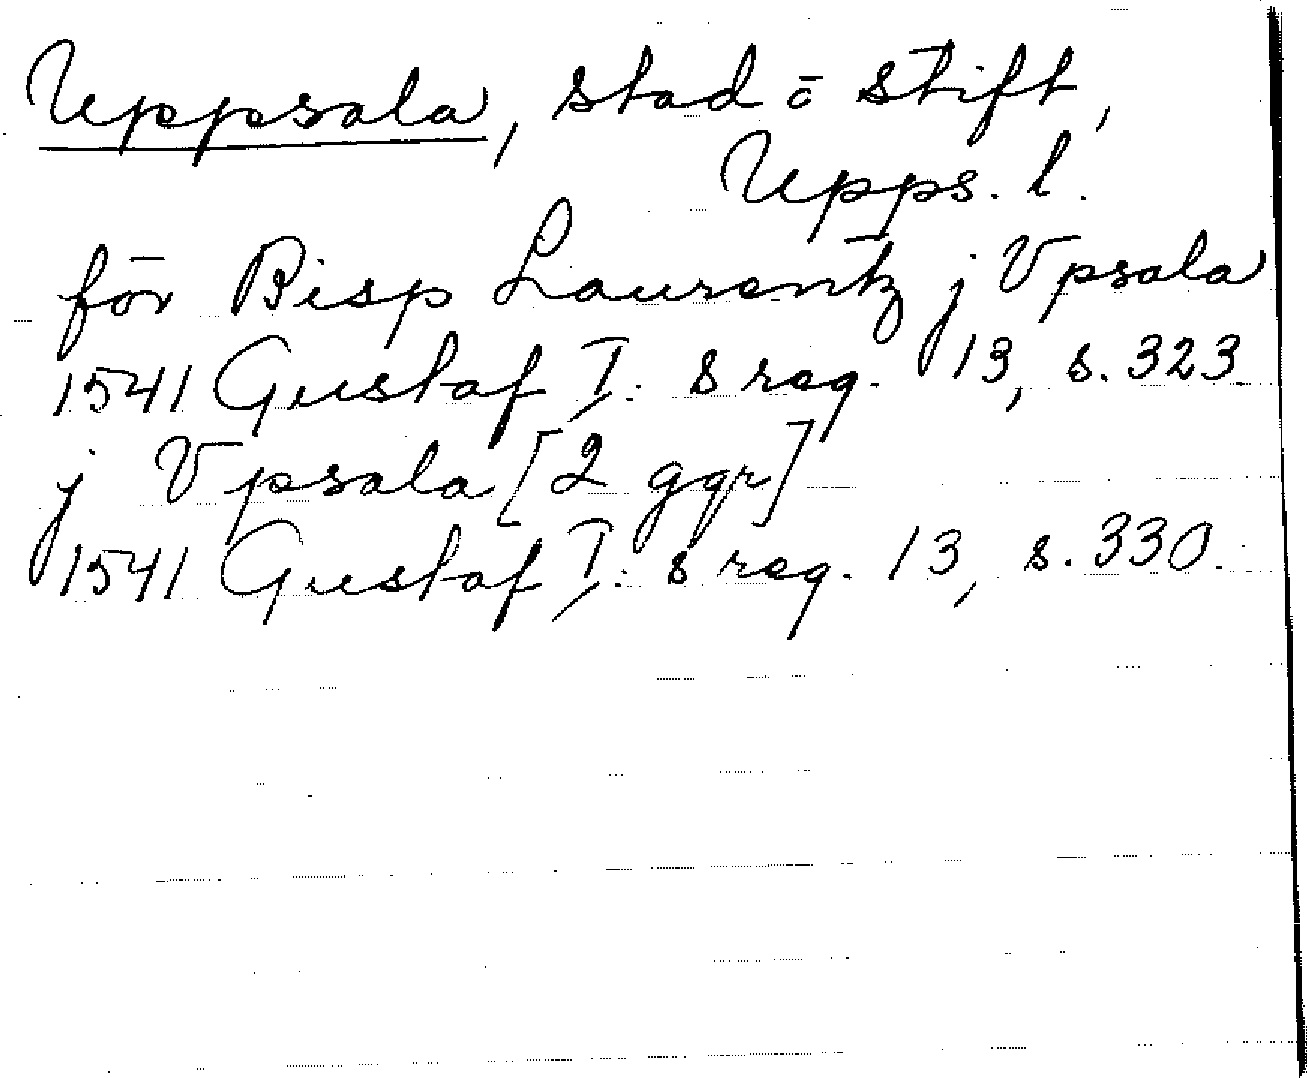 Uppsala, stad ō stift,
Upps. l.
för Bisp Laurentz j Vpsala
1541 Gustaf I:s reg. 13, s. 323
j Vpsala [2 ggr]
1541 Gustaf I:s reg. 13, s. 330.